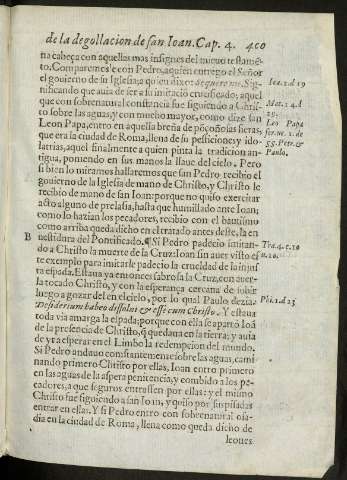 de la degollacion de san Ioan. Cap. 4. 400
na cabeça con aquellas mas insignes del nueuo testamē
to. Comparemos'e con Pedro, a quien entrego el Señor
el gouierno de su Iglesia; a quien dixo: Sequere me. Sig-
nificando que auia de ser a su imitació crucificado; aquel
que con sobrenatural constancia fue siguiendo a Chris-
to sobre las aguas, y con mucho mayor, como dize san
Leon Papa, entro en aquella breña de pōçoñosas fieras,
que era la ciudad de Roma, llena de supersticiones y ido-
latrias, aquel finalmente a quien pinta la tradicion an-
tigua, poniendo en sus manos la llaue del cielo. Pero
si bien lo miramos hallaremos que san Pedro recibio el
gouierno de la Iglesia de mano de Christo, y Christo le
recibio de mano de san Ioan: porque no quiso exercitar
acto alguno de prelasia, hasta que humillado ante Ioan;
como lo hazian los pecadores, recibio con el bautismo
como arriba queda dicho en el tratado antes deste, la en
uestidura del Pontificado. ¶ Si Pedro padecio imitan-
do a Christo la muerte de la Cruz: Ioan sin auer visto es
te exemplo para imitarle padecio la crueldad de la injus
ta espada. Estaua ya entonces sabrosa la Cruz, con auer-
la tocado Christo, y con la esperança cercana de subir
luego a gozar del en el cielo, por lo qual Paulo dezia:
Desiderium habeo dissolui & esse cum Christo. Y estaua
toda via amarga la espada; porque con ella se aparto Ioā
de la presencia de Christo, q̄ quedaua en la tierra; y auia
de yr a esperar en el Limbo la redempcion del mundo.
Si Pedro anduuo constantemente sobre las aguas, cami
nando primero Christo por ellas, Ioan entro primero
en las aguas de la aspera penitencia, y combido a los pe-
cadores, a que seguros entrassen por ellas: y el mismo
Christo fue siguiendo a san Ioan, y quiso por sus pisadas
entrar en ellas. Y si Pedro entro con sobrenatural osa-
dia en la ciudad de Roma, llena como queda dicho de
leones
B
Leo Papa
Paulo.